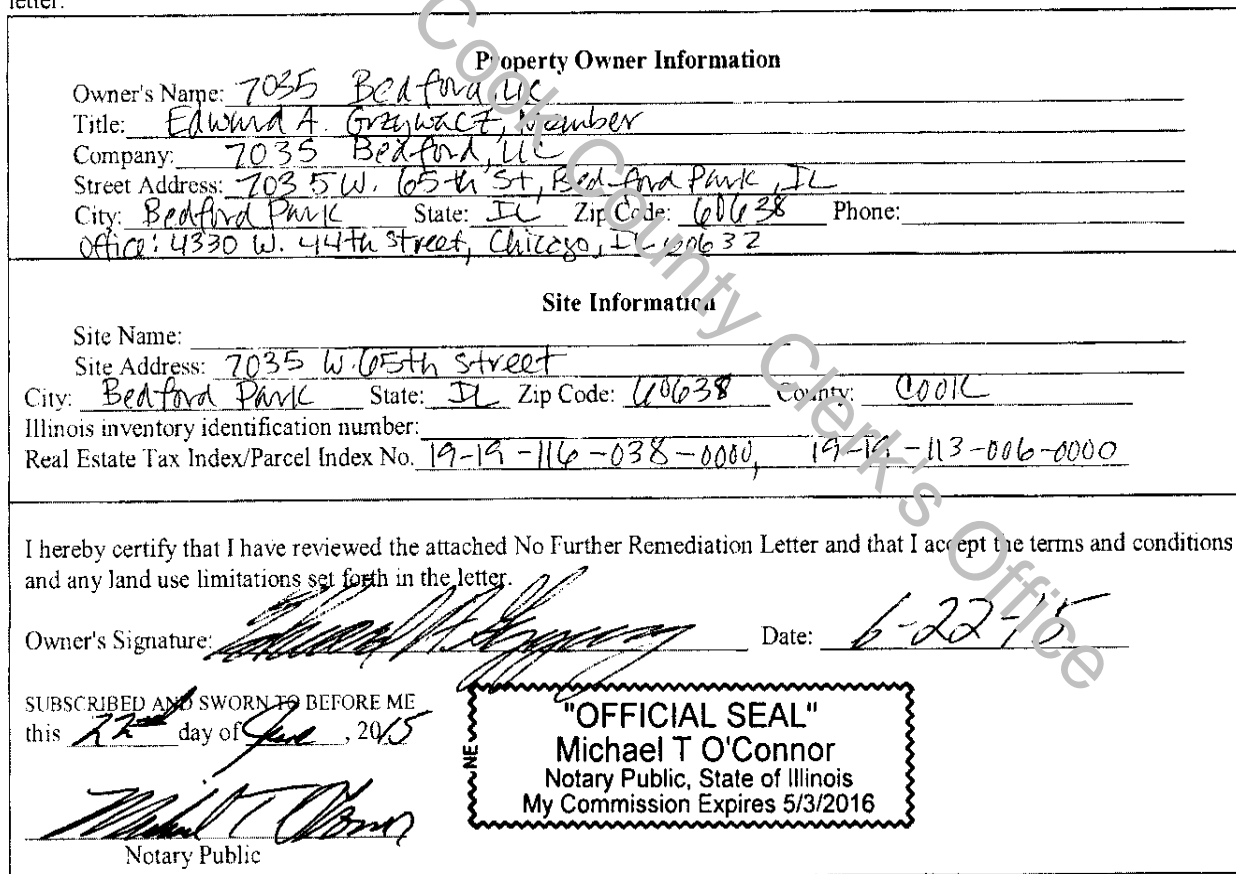 letter.
Property Owner Information
Owner's Name: 7035 Bedford, LLC
Title: Edward A. Grzywacz, Member
Company: 7035 Bedford, LLC
Street Address: 7035 W. 65th St, Bedford Park, IL
City: Bedford Park State: IL Zip Code: 60638 Phone:
Office: 4330 W. 44th Street, Chicago, IL 60632
Site Information
Site Name:
Site Address: 7035 W. 65th Street
City: Bedford Park State: IL Zip Code: 60638 County: COOK
Illinois inventory identification number:
Real Estate Tax Index/Parcel Index No. 19-19-116-038-0000, 19-19-113-006-0000
I hereby certify that I have reviewed the attached No Further Remediation Letter and that I accept the terms and conditions
and any land use limitations set forth in the letter.
Owner's Signature: Date: 6-22-15
SUBSCRIBED AND SWORN TO BEFORE ME
this 22nd day of June, 2015
Notary Public
"OFFICIAL SEAL"
Michael T O'Connor
Notary Public, State of Illinois
My Commission Expires 5/3/2016
NE
Cook County Clerk's Office